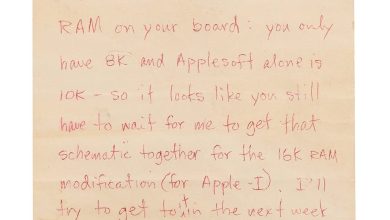 RAM on your board: you only
have 8K and Applesoft alone is
10K - so it looks like you still
have to wait for me to get that
schematic together for the 16K RAM
modification (for Apple-I). I'll
try to get to it in the next week